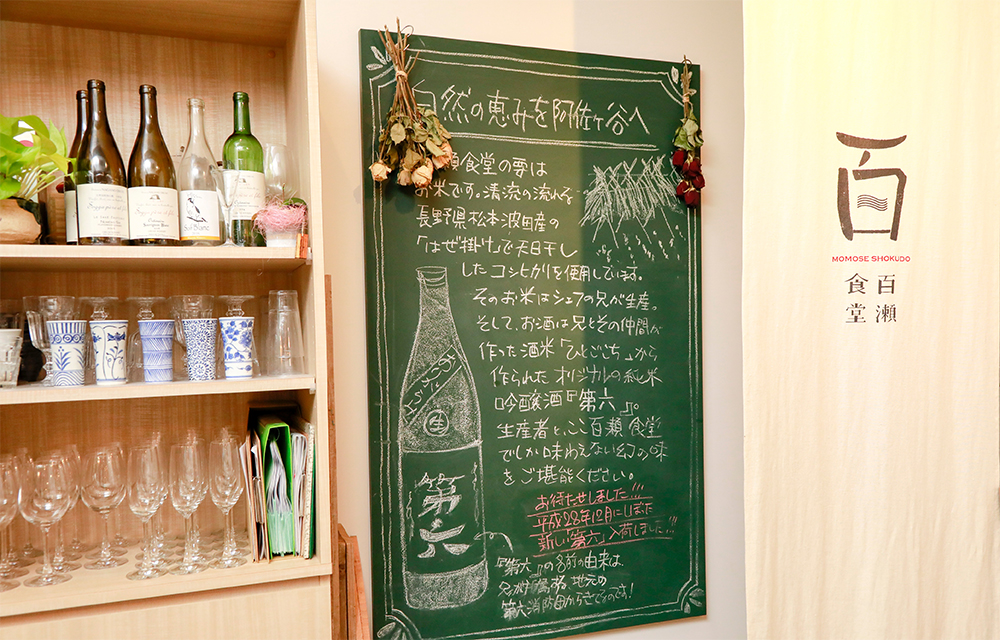 自然の恵みを阿佐ヶ谷へ
瀬食堂の要は
お米です。清流の流れる
長野県松本波田産の
「はぜ掛け」で天日干し
したコシヒカリを使用しています。
そのお米はシェフの兄が生産。
そして、お酒は兄とその仲間が
作った酒米「ひとごこち」から
作られたオリジナルの純米
吟醸酒『第六』。
生産者と、ここ百瀬食堂
でしか味わえない幻の味
をご堪能ください。
お待たせしました!!!
平成28年12月にしぼた
新しい「第六」入荷しました!!!
『第六』の名前の由来は
兄が 地元の
第六消防団からきてるのです!
生
第六
百
MOMOSE SHOKUDO
百瀬
食堂